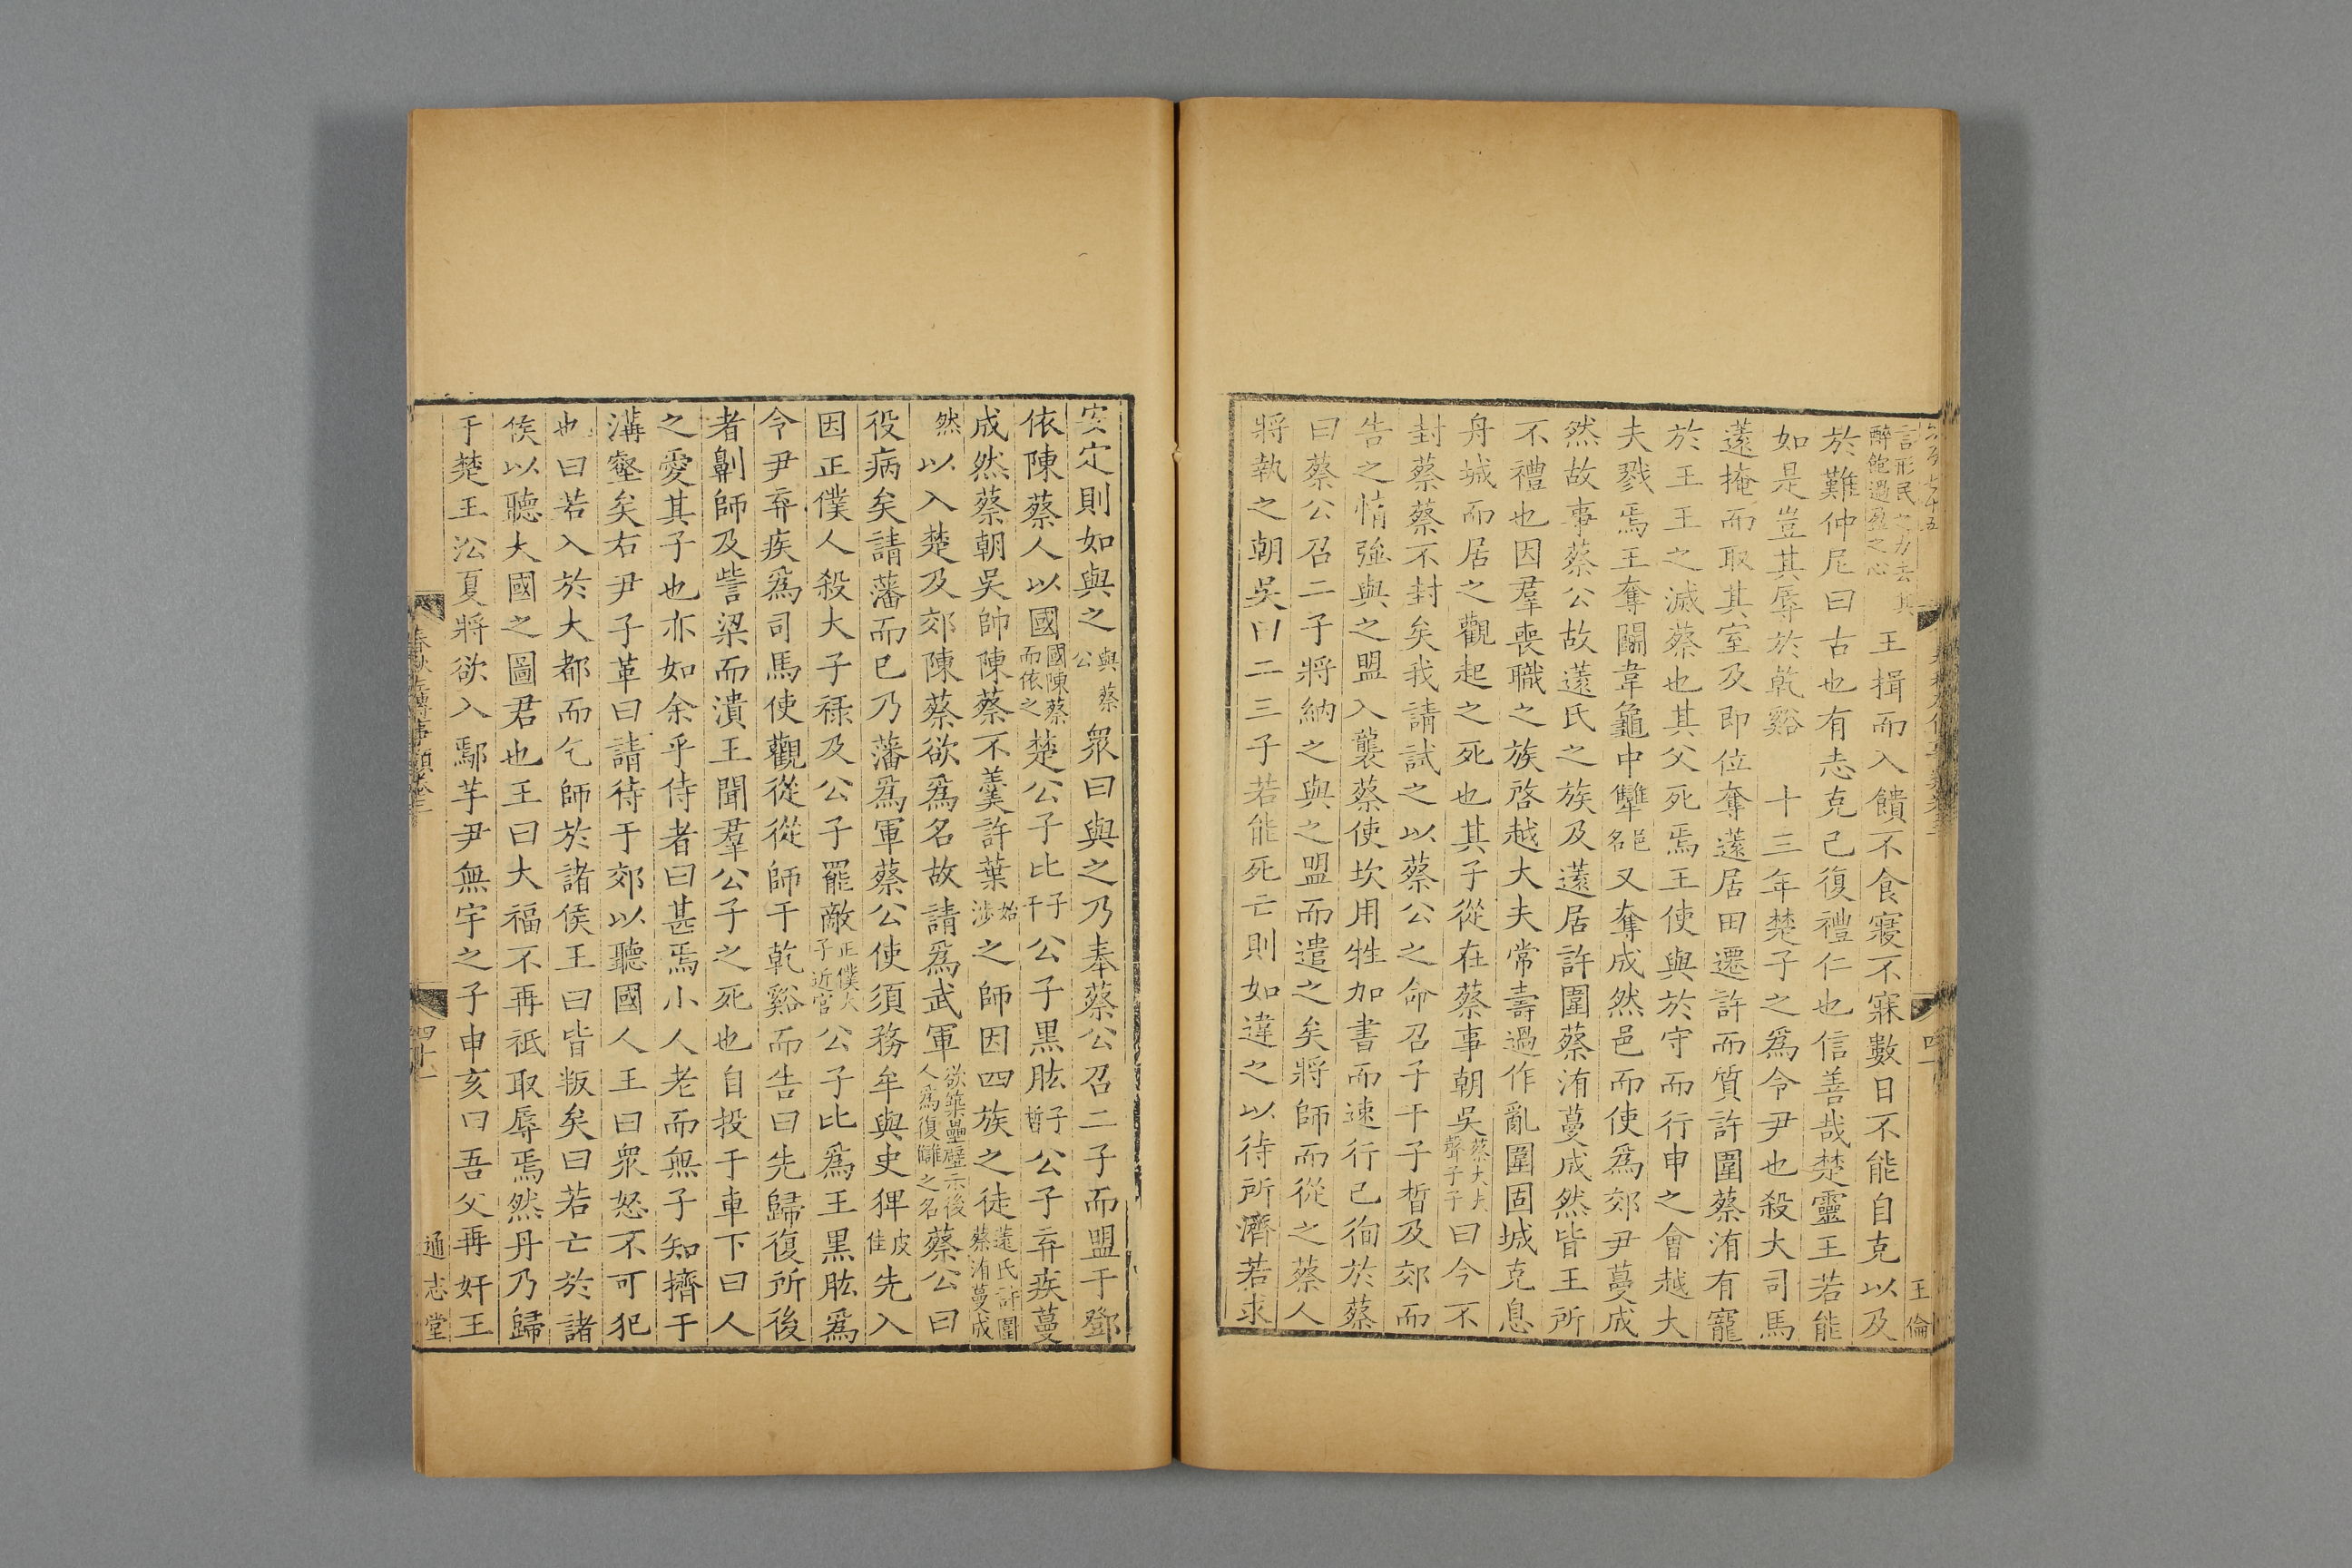 言形民之力去其
醉飽過盈之心
王揖而入饋不食寢不寐數日不能自克以及
於難仲尼曰古也有志克己復禮仁也信善哉楚靈王若能
如是豈其辱於乾谿 十三年楚子之爲令尹也殺大司馬
薳掩而取其室及即位奪薳居田遷許而質許圍蔡洧有寵
於王王之滅蔡也其父死焉王使與於守而行申之會越大
夫戮焉王奪鬬韋龜中犨邑名又奪成然邑而使爲郊尹蔓成
然故事蔡公故薳氏之族及薳居許圍蔡洧蔓成然皆王所
不禮也因羣喪職之族啓越大夫常壽過作亂圍固城克息
舟城而居之觀起之死也其子從在蔡事朝吳蔡大夫聲子子曰今不
封蔡蔡不封矣我請試之以蔡公之命召子干子晳及郊而
告之情強與之盟入襲蔡使坎用牲加書而速行己徇於蔡
曰蔡公召二子將納之與之盟而遣之矣將師而從之蔡人
將執之朝吳曰二三子若能死亡則如違之以待所濟若求
王倫
安定則如與之與蔡公衆曰與之乃奉蔡公召二子而盟于鄧
依陳蔡人以國國陳蔡而依之楚公子比子干公子黑肱子晳公子弃疾蔓
成然蔡朝吳帥陳蔡不羹許葉始涉之師因四族之徒薳氏許圍蔡洧蔓成
然以入楚及郊陳蔡欲爲名故請爲武軍欲築壘壁示後人爲復讎之名蔡公曰
役病矣請藩而已乃藩爲軍蔡公使須務牟與史猈皮佳先入
因正僕人殺大子祿及公子罷敵正僕大子近官公子比爲王黑肱爲
令尹弃疾爲司馬使觀從從師于乾谿而告曰先歸復所後
者劓師及訾梁而潰王聞羣公子之死也自投于車下曰人
之愛其子也亦如余乎侍者曰甚焉小人老而無子知擠于
溝壑矣右尹子革曰請待于郊以聽國人王曰衆怒不可犯
也曰若入於大都而乞師於諸侯王曰皆叛矣曰若亡於諸
侯以聽大國之圖君也王曰大福不再祇取辱焉然丹乃歸
于楚王㳂夏將欲入鄢芋尹無宇之子申亥曰吾父再奸王
春秋左傳事類卷三
四十一
通志堂